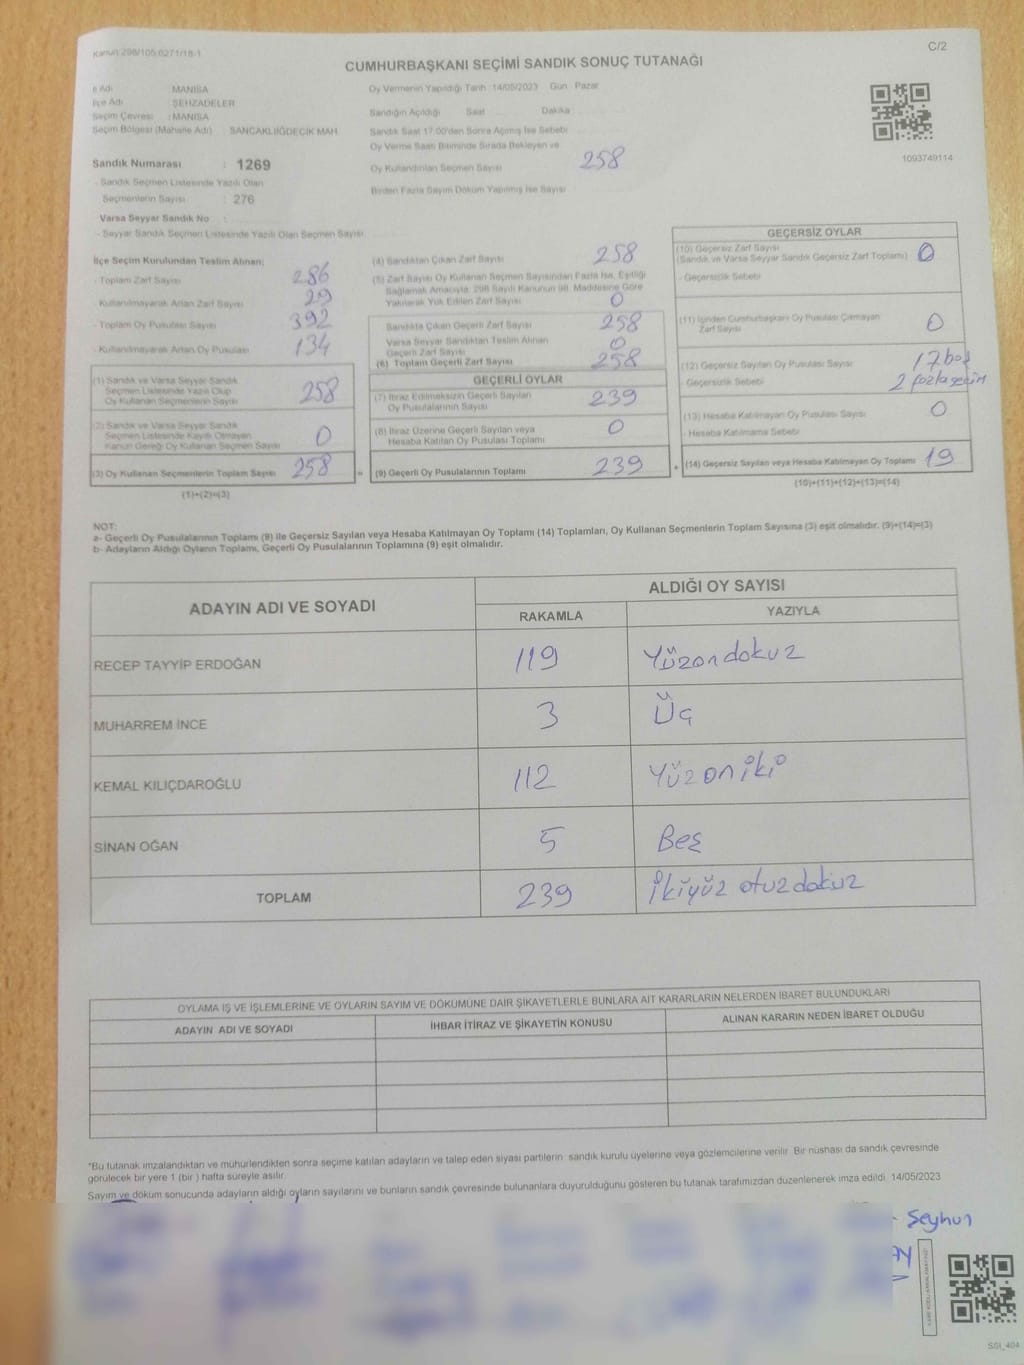 Kanun 298/105,0271/18-1
C/2
CUMHURBAŞKANI SEÇİMİ SANDIK SONUÇ TUTANAĞI
İl Adı MANİSA
İlçe Adı ŞEHZADELER
Seçim Çevresi : MANİSA
Seçim Bölgesi (Mahalle Adı)
Oy Vermenin Yapıldığı Tarih 14/05/2023 Gün Pazar
Sandığın Açıldığı Saat Dakika
Sandık Saat 17.00'den Sonra Açılmış İse Sebebi
Oy Verme Saati Bitiminde Sırada Bekleyen ve
Oy Kullandırılan Seçmen Sayısı 258
Birden Fazla Sayım Döküm Yapılmış İse Sayısı
1093749114
Sandık Numarası : 1269
- Sandık Seçmen Listesinde Yazılı Olan
Seçmenlerin Sayısı : 276
Varsa Seyyar Sandık No
- Seyyar Sandık Seçmen Listesinde Yazılı Olan Seçmen Sayısı
İlçe Seçim Kurulundan Teslim Alınan:
- Toplam Zarf Sayısı 286
- Kullanılmayarak Artan Zarf Sayısı 29
- Toplam Oy Pusulası Sayısı 392
- Kullanılmayarak Artan Oy Pusulası 134
(1) Sandık ve Varsa Seyyar Sandık
Seçmen Listesinde Yazılı Olup
Oy Kullanan Seçmenlerin Sayısı 258
(2) Sandık ve Varsa Seyyar Sandık
Seçmen Listesinde Kayıtlı Olmayan
Kanun Gereği Oy Kullanan Seçmen Sayısı 0
(3) Oy Kullanan Seçmenlerin Toplam Sayısı 258
(1)+(2)=(3)
(4) Sandıktan Çıkan Zarf Sayısı 258
(5) Zarf Sayısı Oy Kullanan Seçmen Sayısından Fazla İse, Eşitliği
Sağlamak Amacıyla, 298 Sayılı Kanunun 98. Maddesine Göre
Yakılarak Yok Edilen Zarf Sayısı 0
Sandıkta Çıkan Geçerli Zarf Sayısı 258
Varsa Seyyar Sandıktan Teslim Alınan
Geçerli Zarf Sayısı 0
(6) Toplam Geçerli Zarf Sayısı 258
GEÇERLİ OYLAR
(7) İtiraz Edilmeksizin Geçerli Sayılan
Oy Pusulalarının Sayısı 239
(8) İtiraz Üzerine Geçerli Sayılan veya
Hesaba Katılan Oy Pusulası Toplamı 0
(9) Geçerli Oy Pusulalarının Toplamı 239
GEÇERSİZ OYLAR
(10) Geçersiz Zarf Sayısı
(Sandık ve Varsa Seyyar Sandık Geçersiz Zarf Toplamı) 0
- Geçersizlik Sebebi
(11) İçinden Cumhurbaşkanı Oy Pusulası Çıkmayan
Zarf Sayısı 0
(12) Geçersiz Sayılan Oy Pusulası Sayısı 17 boş
- Geçersizlik Sebebi 2 fazla seçim
(13) Hesaba Katılmayan Oy Pusulası Sayısı 0
- Hesaba Katılmama Sebebi
(14) Geçersiz Sayılan veya Hesaba Katılmayan Oy Toplamı 19
(10)+(11)+(12)+(13)=(14)
NOT:
a- Geçerli Oy Pusulalarının Toplamı (9) ile Geçersiz Sayılan veya Hesaba Katılmayan Oy Toplamı (14) Toplamları, Oy Kullanan Seçmenlerin Toplam Sayısına (3) eşit olmalıdır. (9)+(14)=(3)
b- Adayların Aldığı Oyların Toplamı, Geçerli Oy Pusulalarının Toplamına (9) eşit olmalıdır.
ADAYIN ADI VE SOYADI
ALDIĞI OY SAYISI
RAKAMLA YAZIYLA
RECEP TAYYİP ERDOĞAN 119 Yüzondokuz
MUHARREM İNCE 3 Üç
KEMAL KILIÇDAROĞLU 112 Yüzoniki
SİNAN OĞAN 5 Beş
TOPLAM 239 İkiyüz otuzdokuz
OYLAMA İŞ VE İŞLEMLERİNE VE OYLARIN SAYIM VE DÖKÜMÜNE DAİR ŞİKAYETLERLE BUNLARA AİT KARARLARIN NELERDEN İBARET BULUNDUKLARI
ADAYIN ADI VE SOYADI İHBAR İTİRAZ VE ŞİKAYETİN KONUSU ALINAN KARARIN NEDEN İBARET OLDUĞU
*Bu tutanak imzalandıktan ve mühürlendikten sonra seçime katılan adayların ve talep eden siyasi partilerin sandık kurulu üyelerine veya gözlemcilerine verilir. Bir nüshası da sandık çevresinde
görülecek bir yere 1 (bir) hafta süreyle asılır.
Sayım ve döküm sonucunda adayların aldığı oyların sayılarını ve bunların sandık çevresinde bulunanlara duyurulduğunu gösteren bu tutanak tarafımızdan düzenlenerek imza edildi. 14/05/2023
Seyhun
AY
SSI_404